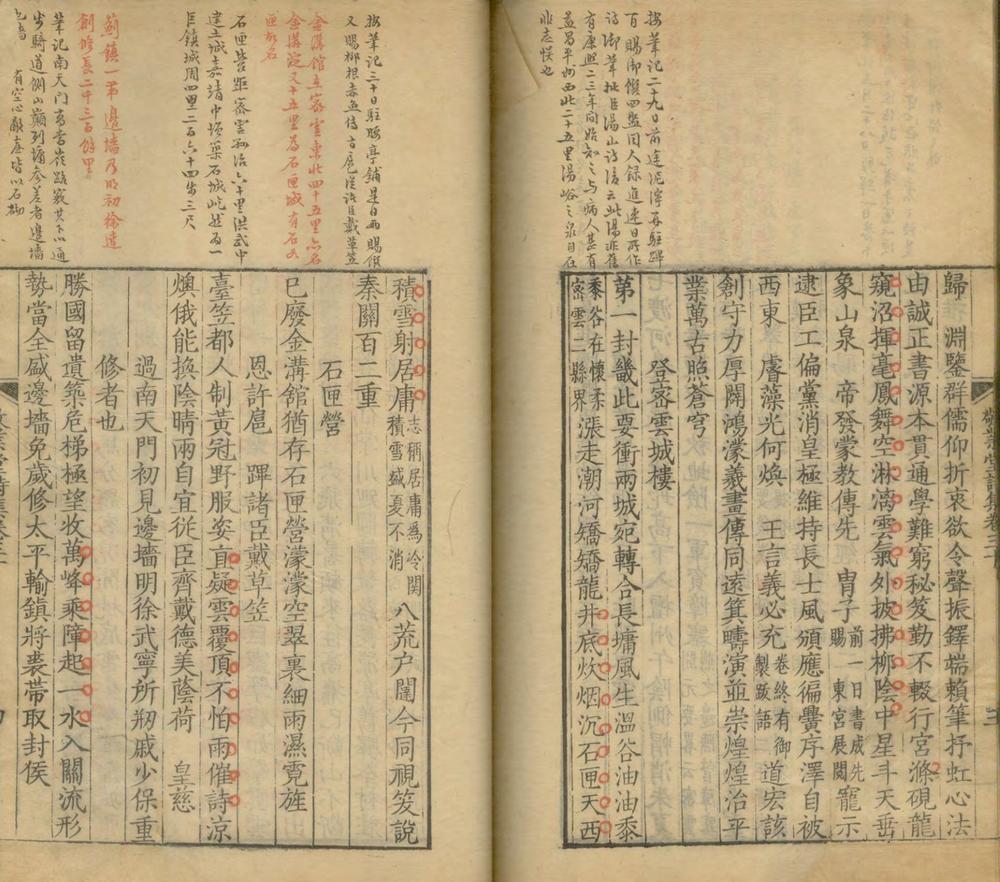 按筆記二十九日前途泥濘再駐蹕
百賜御饌四盤同人錄進連日所作
詩御筆批臣湯山詩後云此湯非舊
有康熙二三年間始知之与病人甚有
益昌平州西北二十五里湯峪之泉目在
非志悞也
歸 淵鑒群儒仰折衷欲令聲振鐸端賴筆抒虹心法
由誠正書源本貫通學難窮秘笈勤不輟行宮滌硯龍
窺沼揮毫鳳舞空淋漓雲氣外披拂柳陰中星斗天垂
象山泉 帝發蒙教傳先 胄子前一日書成先賜 東宮展閱寵示
逮臣工偏黨消皇極維持長士風頒應徧黌序澤自被
西東 睿藻光何煥 王言義必充卷終有御製跋語道宏該
創守力厚闢鴻濛羲畫傳同遠箕疇演並崇煌煌治平
業萬古照蒼穹
登密雲城樓
第一封畿此要衝兩城宛轉合長墉風生溫谷油油黍
黍谷在懷柔密雲二縣界漲走潮河矯矯龍井底炊烟沉石匣天西
按筆記三十日駐腰亭鋪是日兩賜饌
又賜柳根赤魚傳旨扈從諸臣戴草笠
金溝館在密雲東北四十五里六名
金溝淀又十五里為石匣城有石如
匣故名
石匣營距密雲縣治六十里洪武中
建土城嘉靖中項築石城屹然為一
巨鎮城周四里二百六十四步三尺
薊鎮一帶邊墻乃明初徐達
創修長二千三百餘里
筆記南天門
步騎道側山巔列墉參差者邊墻
也墻 有空心敵臺皆以石砌
積雪射居庸志稱居庸爲冷関積雪盛夏不消八荒户闥今同視笑說
秦關百二重
石匣營
已廢金溝館猶存石匣營濛濛空翠裏細雨濕霓旌
恩許扈 蹕諸臣戴草笠
臺笠都人制黃冠野服姿直疑雲覆頂不怕雨催詩凉
燠俄能換陰晴兩自宜従臣齊戴德美蔭荷 皇慈
過南天門初見邊墻明徐武寧所剏戚少保重
修者也
勝國留遺築危梯極望收萬峰乘障起一水入關流形
勢當全盛邊墻免歲修太平輸鎮將裘帶取封侯